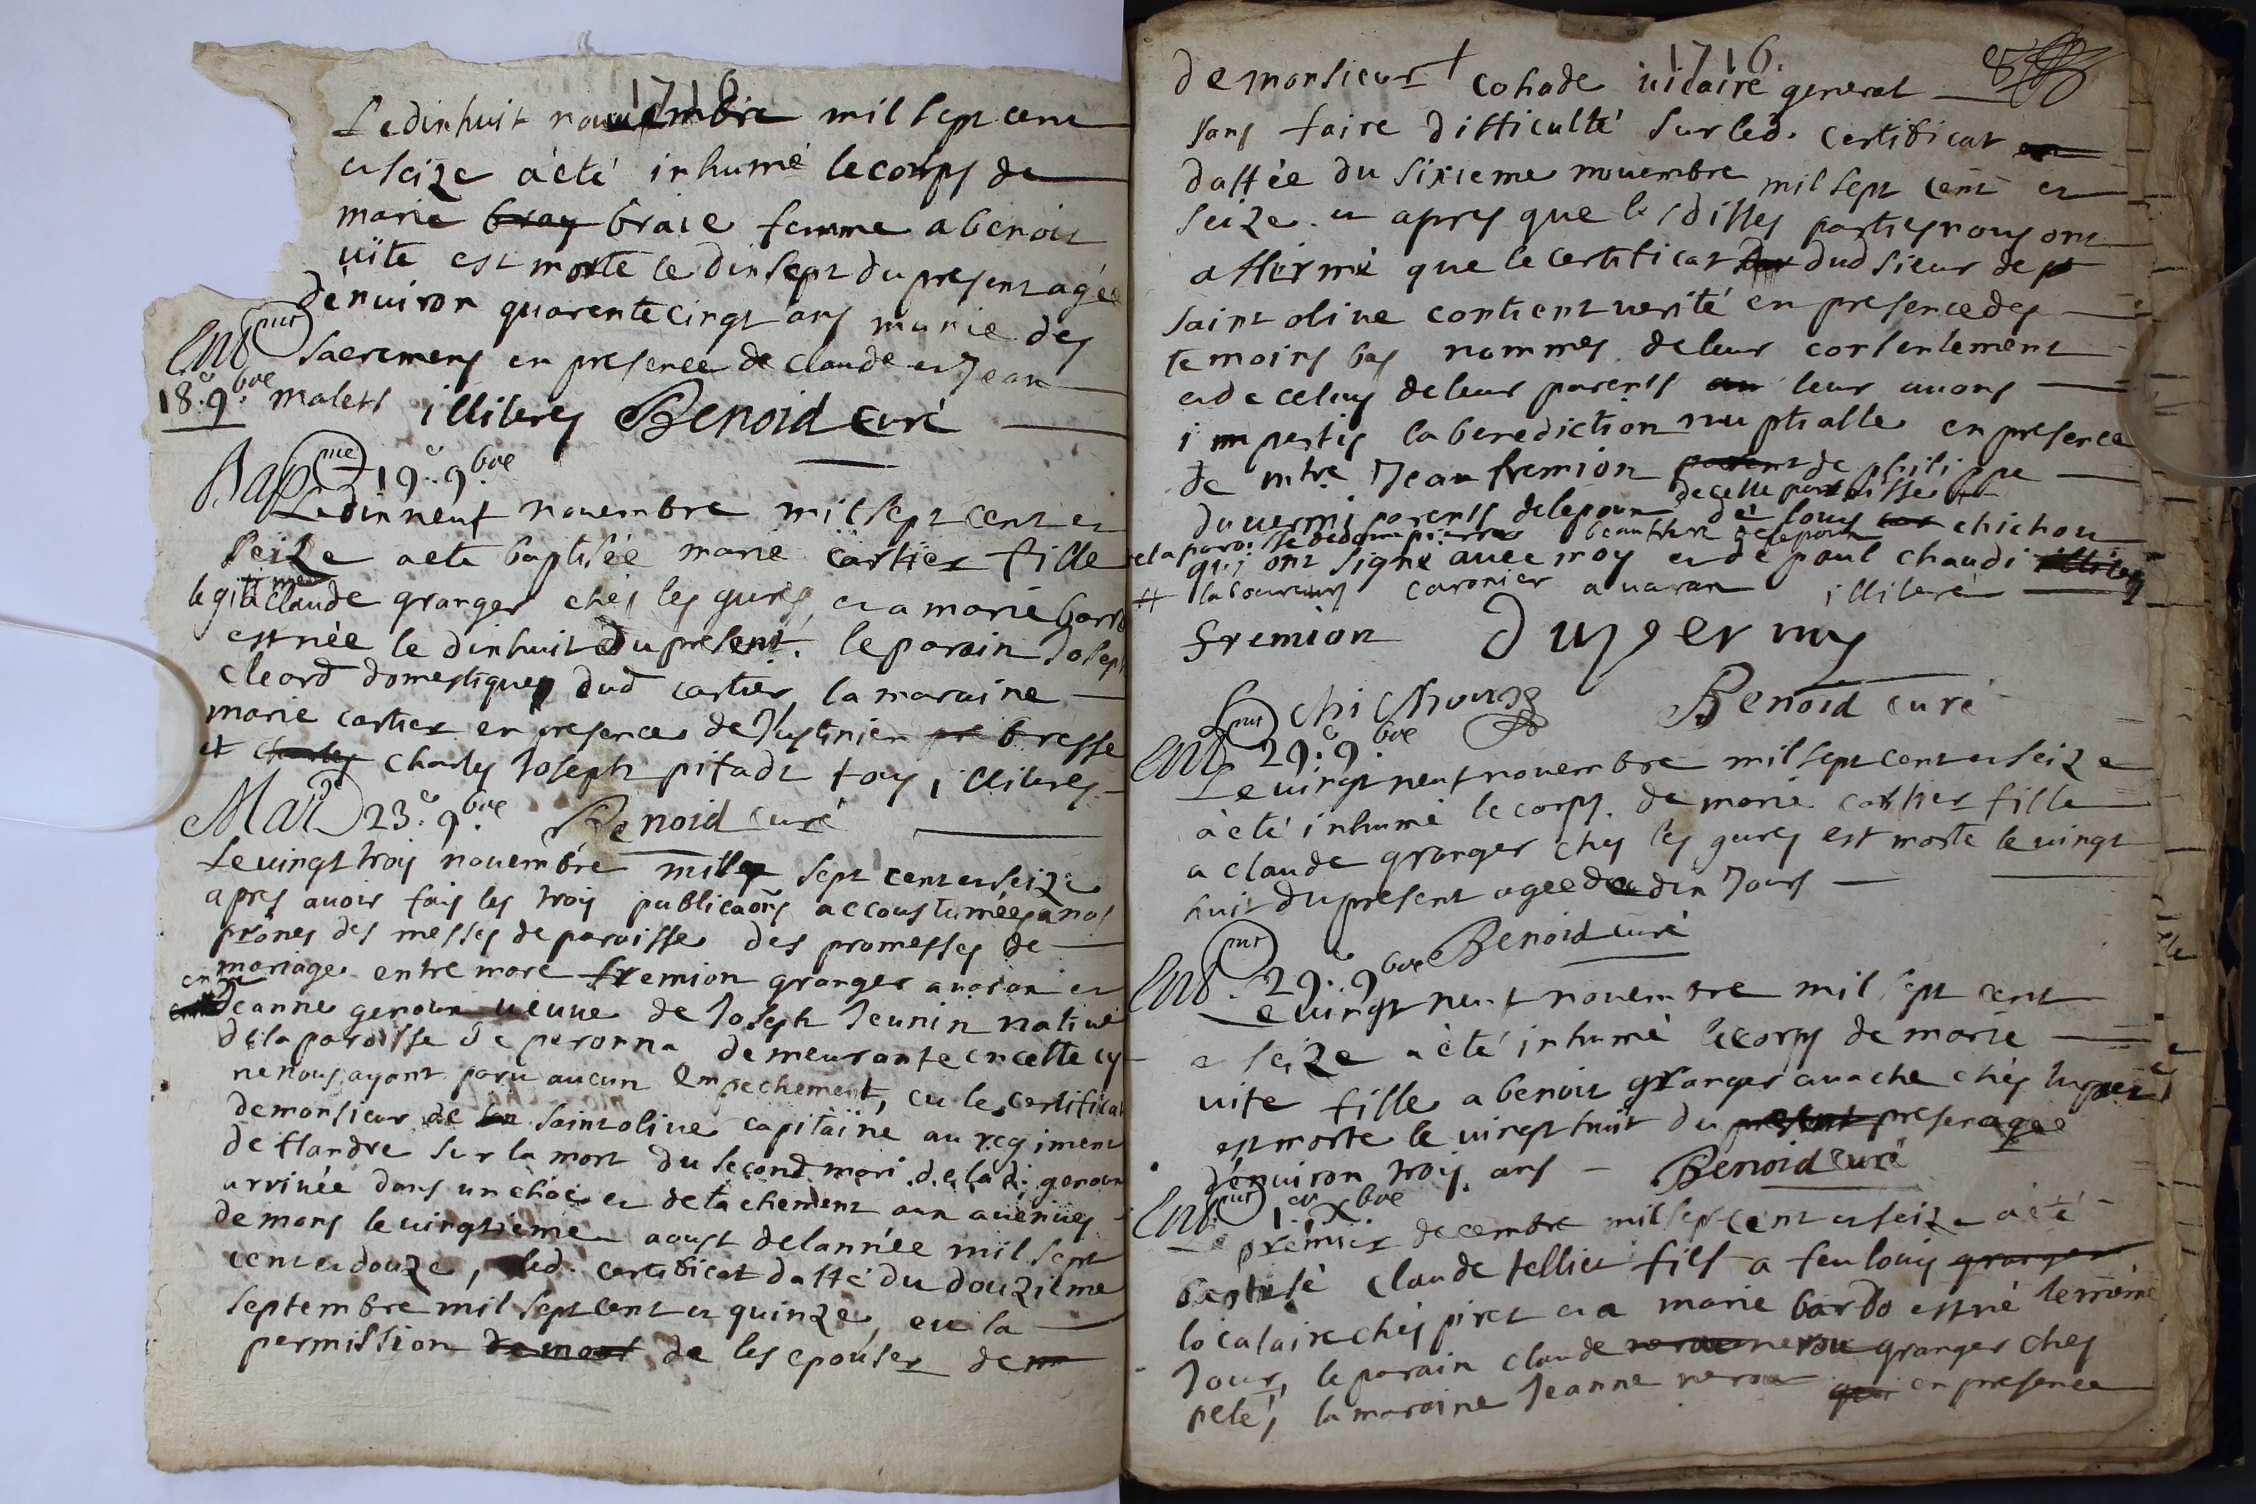 1716
Le dixhuit novembre mil sept cent
et seize a été inhumé le corps de
marie bray braie femme a benoit
vite est morte le dixsept du present agée
denuiron quarente cinqt ans munie des
Ent pur sacremens en presence de claude et Jean
18.e 9.bre malets illiteres Benoid curé
Bap me 19.e 9.bre
Le dixneuf novembre mil sept cent et
seize a ete baptisée marie cartier fille
legitime a claude granger chés les gures et a marie bardo
est née le dixhuit du present. le parain Joseph
cleard domestique dud cartier, la maraine
marie cartier en presence de Justinien bresse
et charles charles Joseph pitadt tous illiteres
Mar 23.e 9.bre Benoid curé
Le vingt trois novembre mille sept cent et seize
apres avoir fais les trois publicaons accoustumées a nos
prônes des messes de paroisse des promesses de
mariage entre marc fremion granger a varan et
Jeanne genoux veuve de Joseph Jeunin native
de la paroisse de peronna demeurante en celle cy
ne nous ayant paru aucun empechement, eu le certificat
de monsieur de saint olive capitaine au regiment
de flandre sur la mort du second mari de lad. genoux
arrivée dans un choc et detachement aux avenües
de mons le vingtieme aoust de lannée mil sept
cent et douze, led. certificat datté du douzieme
septembre mil sept cent et quinze, eu la
permission de mons de les epouser de
1716.
de monsieur + cohade vicaire general
sans faire difficulté sur led. certificat
dattée du sixieme novembre mil sept cent et
seize. et apres que lesdittes parties nous ont
affirmé que le certificat dud sieur de
saint olive contient verité en presence des
temoins bas nommes de leur consentement
et de celuy de leurs parents leur avons
impartis la benediction nuptialle en presence
de mtre Jean fremion parent de philippe
de celle paroisse
duvermi parents de lepoux de louis chichou
et la paroisse de dompierre beaufrere de lepoux
qui ont signé avec moy et de paul chaudi
# laboureur caronier a varan illiteré
fremion duvermy
L chichoux Benoid curé
Ent pur 29.e 9.bre
Le vingt neuf novembre mil sept cent et seize
a été inhumé le corps de marie cartier fille
a claude granger ches les gures est morte le vingt
huit du present agée de dix Jours
Benoid curé
Ent pur 29.e 9.bre
Le vingt neuf novembre mil sept cent
et seize a été inhumé le corps de marie
vite fille a benoit granger a vache chés
est morte le vingt huit du present present agée
denuiron trois ans — Benoid curé
1.er Xbre
Le premier decembre mil sept cent et seize a eté
baptisé claude tellier fils a feu louis granger
locataire chés piret et a marie bardo est né le même
Jour, le parain claude nerou granger ches
pelé, la maraine Jeanne nerou en presence